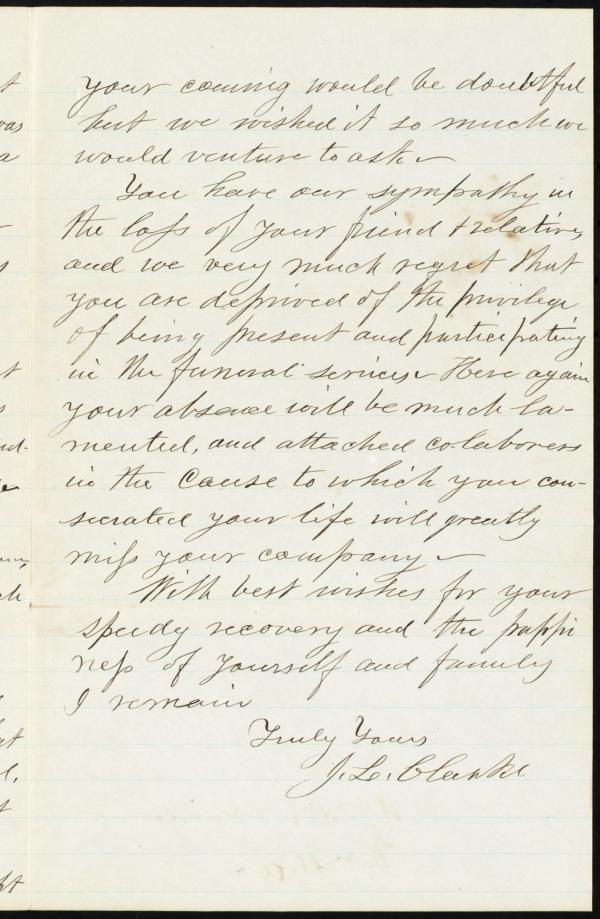 your coming would be doubtful
but we wished it so much we
would venture to ask –
You have our sympathy in
the loss of your friend & relative,
and we very much regret that
you are deprived of the privilege
of being present and participating
in the funeral services – Here again
your absence will be much la-
mented, and attached co-laborers
in the Cause to which you con-
secrated your life will greatly
miss your company –
With best wishes for your
speedy recovery and the happi
ness of yourself and family
I remain
Truly Yours
J. L. Clarke